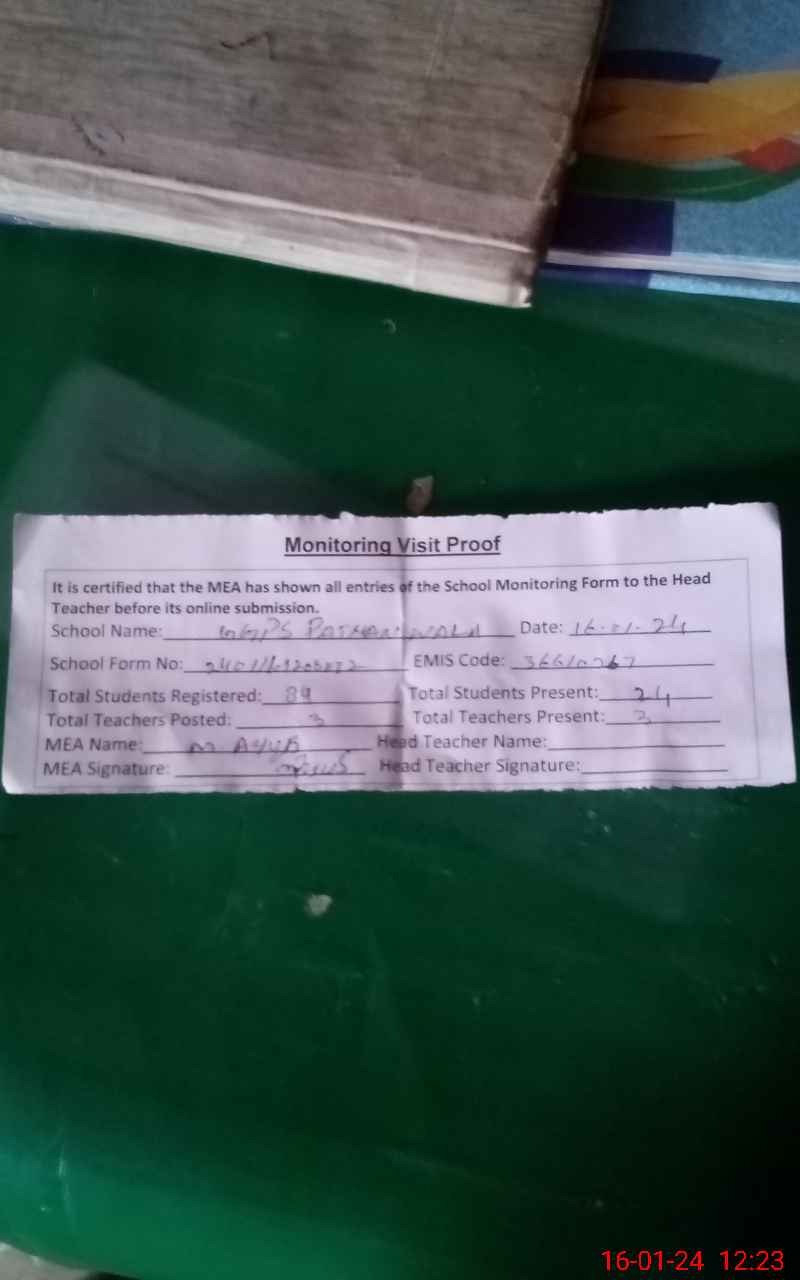 Monitoring Visit Proof
It is certified that the MEA has shown all entries of the School Monitoring Form to the Head
Teacher before its online submission.
School Name: GGPS PATHAN WALA Date: 16.01.24
School Form No: EMIS Code:
Total Students Registered: 89 Total Students Present: 24
Total Teachers Posted: 3 Total Teachers Present: 3
MEA Name: M AYUB Head Teacher Name:
MEA Signature: Head Teacher Signature:
16-01-24 12:23